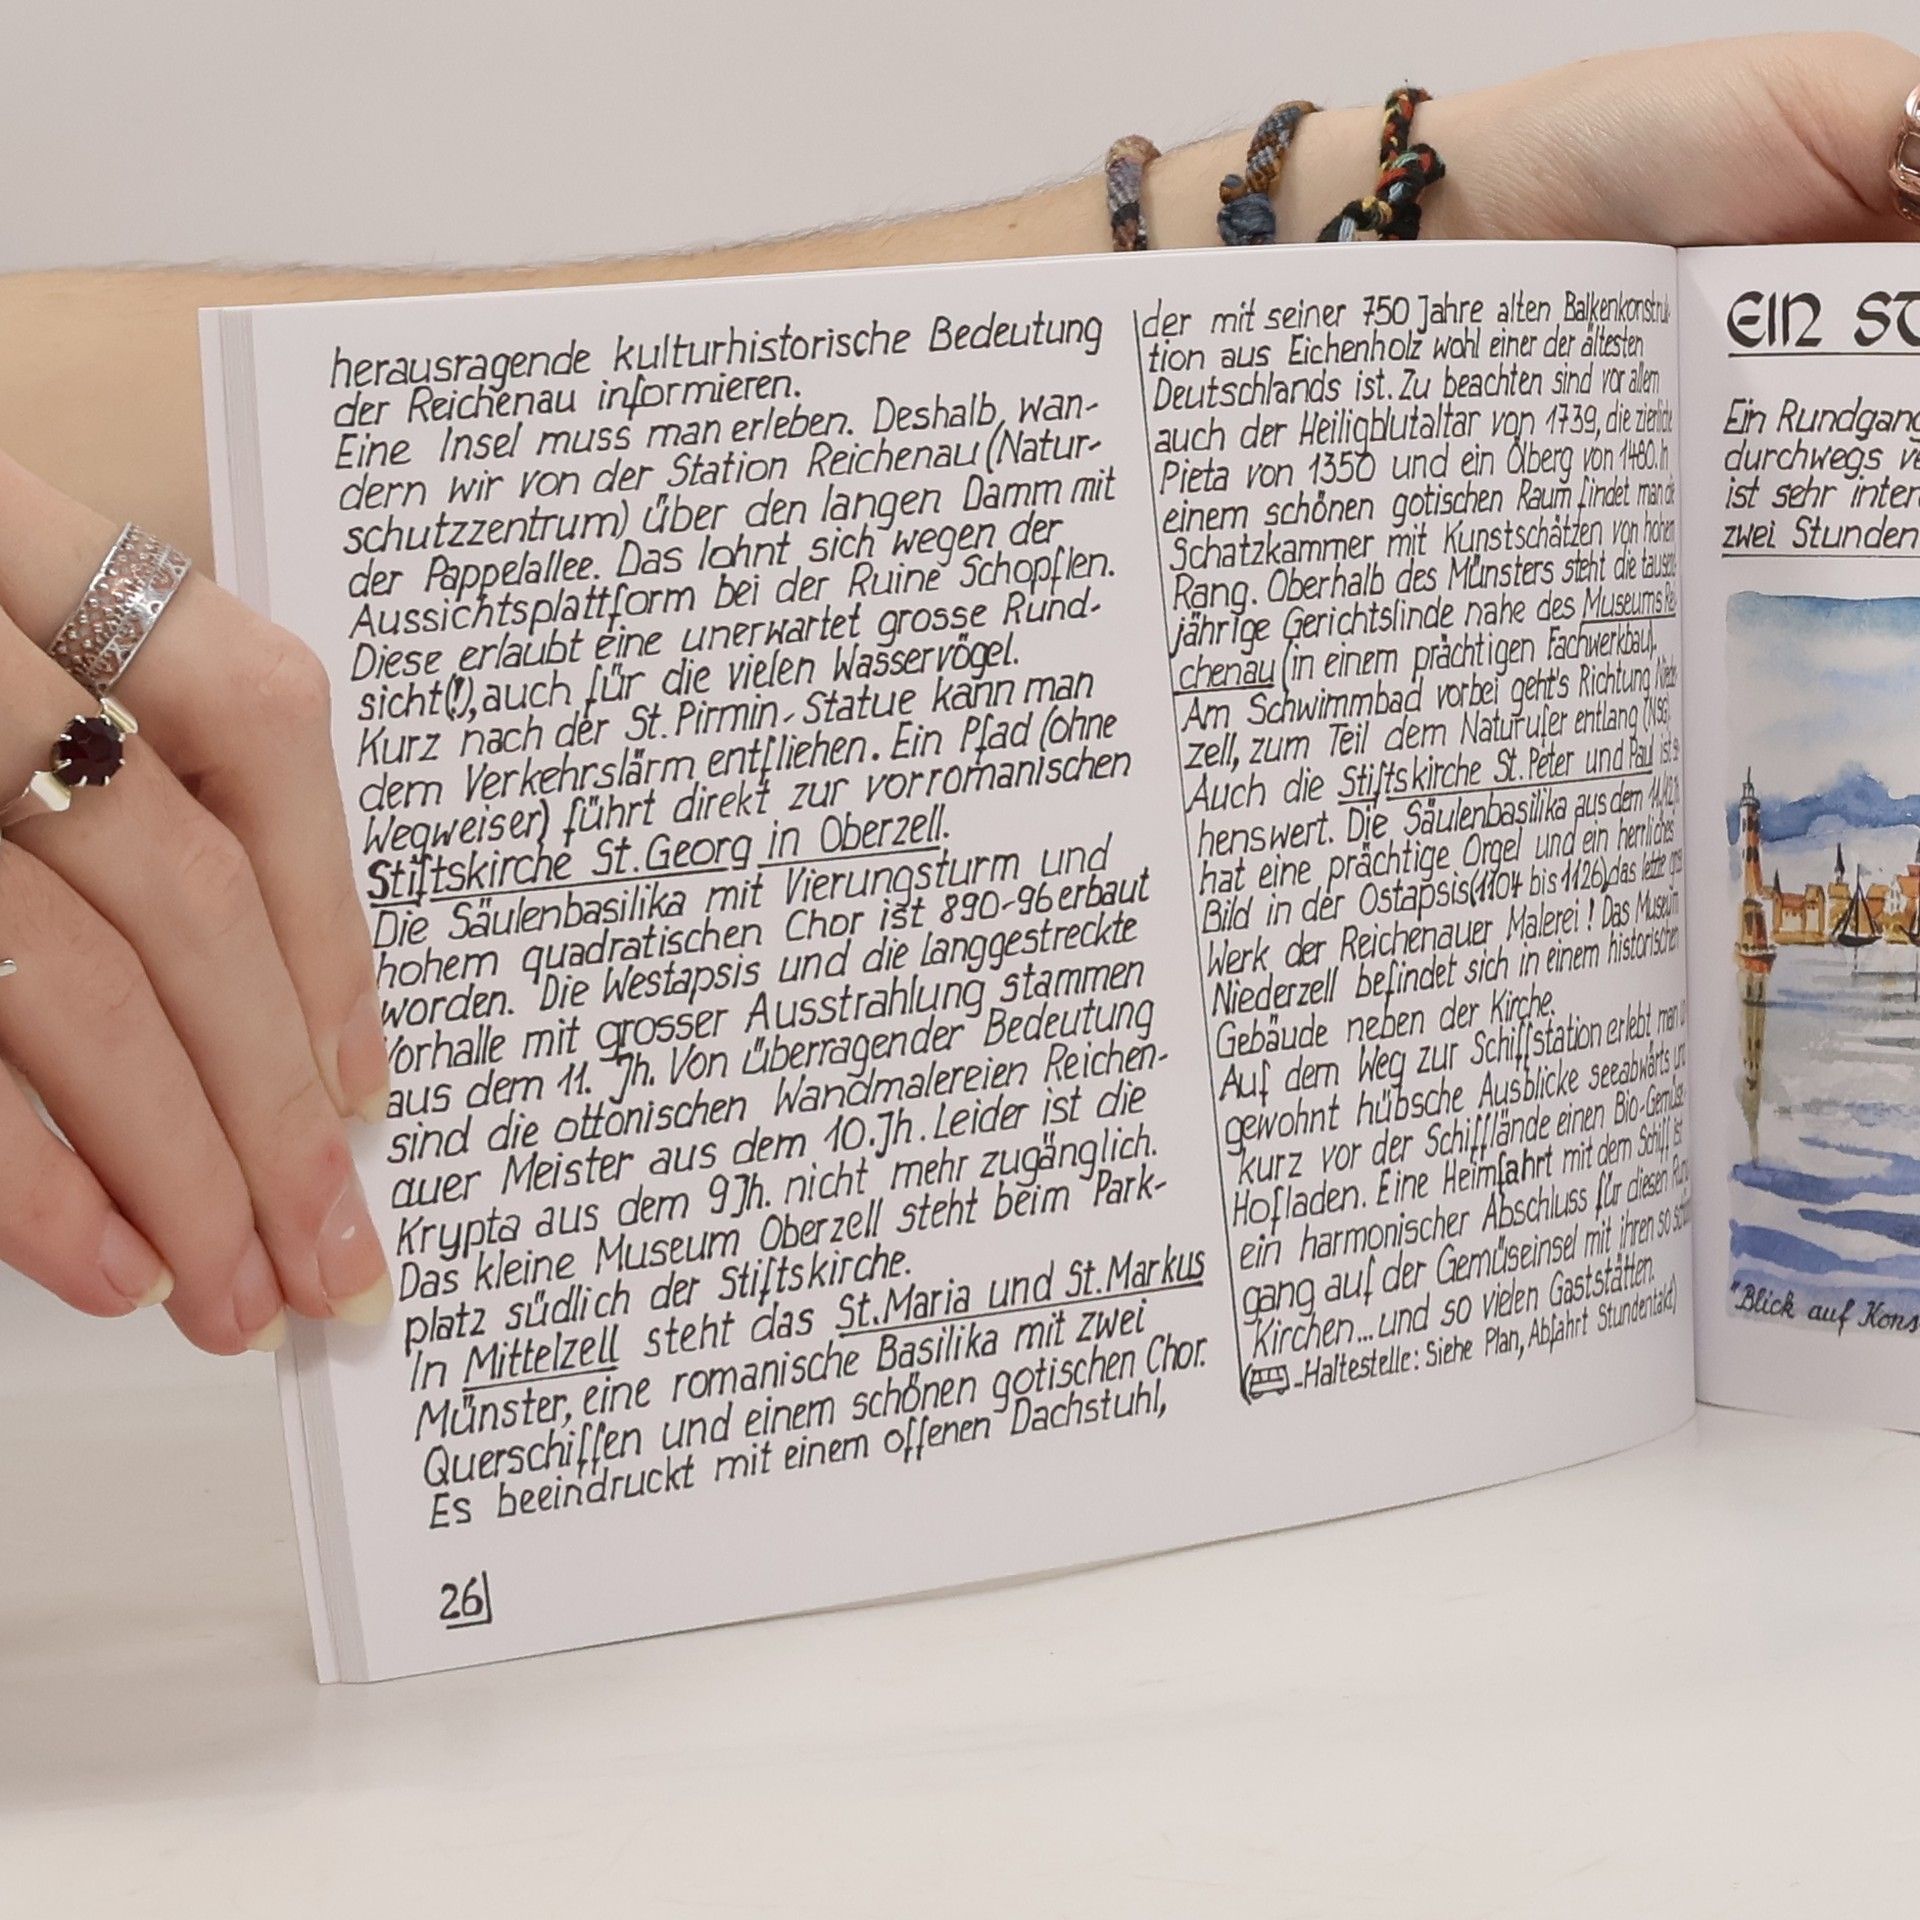 herausragende kulturhistorische Bedeutung
der Reichenau informieren.
Eine Insel muss man erleben. Deshalb wan-
dern wir von der Station Reichenau (Natur-
schutzzentrum) über den langen Damm mit
der Pappelallee. Das lohnt sich wegen der
Aussichtsplattform bei der Ruine Schopflen.
Diese erlaubt eine unerwartet grosse Rund-
sicht(!), auch für die vielen Wasservögel.
Kurz nach der St. Pirmin-Statue kann man
dem Verkehrslärm entfliehen. Ein Pfad (ohne
Wegweiser) führt direkt zur vorromanischen
Stiftskirche St. Georg in Oberzell.
Die Säulenbasilika mit Vierungsturm und
hohem quadratischen Chor ist 890-96 erbaut
worden. Die Westapsis und die langgestreckte
Vorhalle mit grosser Ausstrahlung stammen
aus dem 11. Jh. Von überragender Bedeutung
sind die ottonischen Wandmalereien Reichen-
auer Meister aus dem 10. Jh. Leider ist die
Krypta aus dem 9 Jh. nicht mehr zugänglich.
Das kleine Museum Oberzell steht beim Park-
platz südlich der Stiftskirche.
In Mittelzell steht das St. Maria und St. Markus
Münster, eine romanische Basilika mit zwei
Querschiffen und einem schönen gotischen Chor.
Es beeindruckt mit einem offenen Dachstuhl,
26
der mit seiner 750 Jahre alten Balkenkonstruk-
tion aus Eichenholz wohl einer der ältesten
Deutschlands ist. Zu beachten sind vor allem
auch der Heiligblutaltar von 1739, die zierliche
Pieta von 1350 und ein Ölberg von 1480. In
einem schönen gotischen Raum findet man die
Schatzkammer mit Kunstschätzen von hohem
Rang. Oberhalb des Münsters steht die tausend
jährige Gerichtslinde nahe des Museums Rei-
chenau (in einem prächtigen Fachwerkbau).
Am Schwimmbad vorbei geht's Richtung Nieder-
zell, zum Teil dem Naturufer entlang (NSG).
Auch die Stiftskirche St. Peter und Paul ist se-
henswert. Die Säulenbasilika aus dem 11./12.
hat eine prächtige Orgel und ein herrliches
Bild in der Ostapsis (1104 bis 1126), das letzte
Werk der Reichenauer Malerei! Das Museum
Niederzell befindet sich in einem historischen
Gebäude neben der Kirche.
Auf dem Weg zur Schiffstation erlebt man
gewohnt hübsche Ausblicke seeabwärts
kurz vor der Schifflände einen Bio-Gemüse-
Hofladen. Eine Heimfahrt mit dem Schiff ist
ein harmonischer Abschluss für diesen
gang auf der Gemüseinsel mit ihren so
Kirchen... und so vielen Gaststätten.
(-Haltestelle: Siehe Plan, Abfahrt Stundentakt)
EIN ST
Ein Rundgang
durchwegs
ist sehr
zwei Stunden
"Blick auf Kons